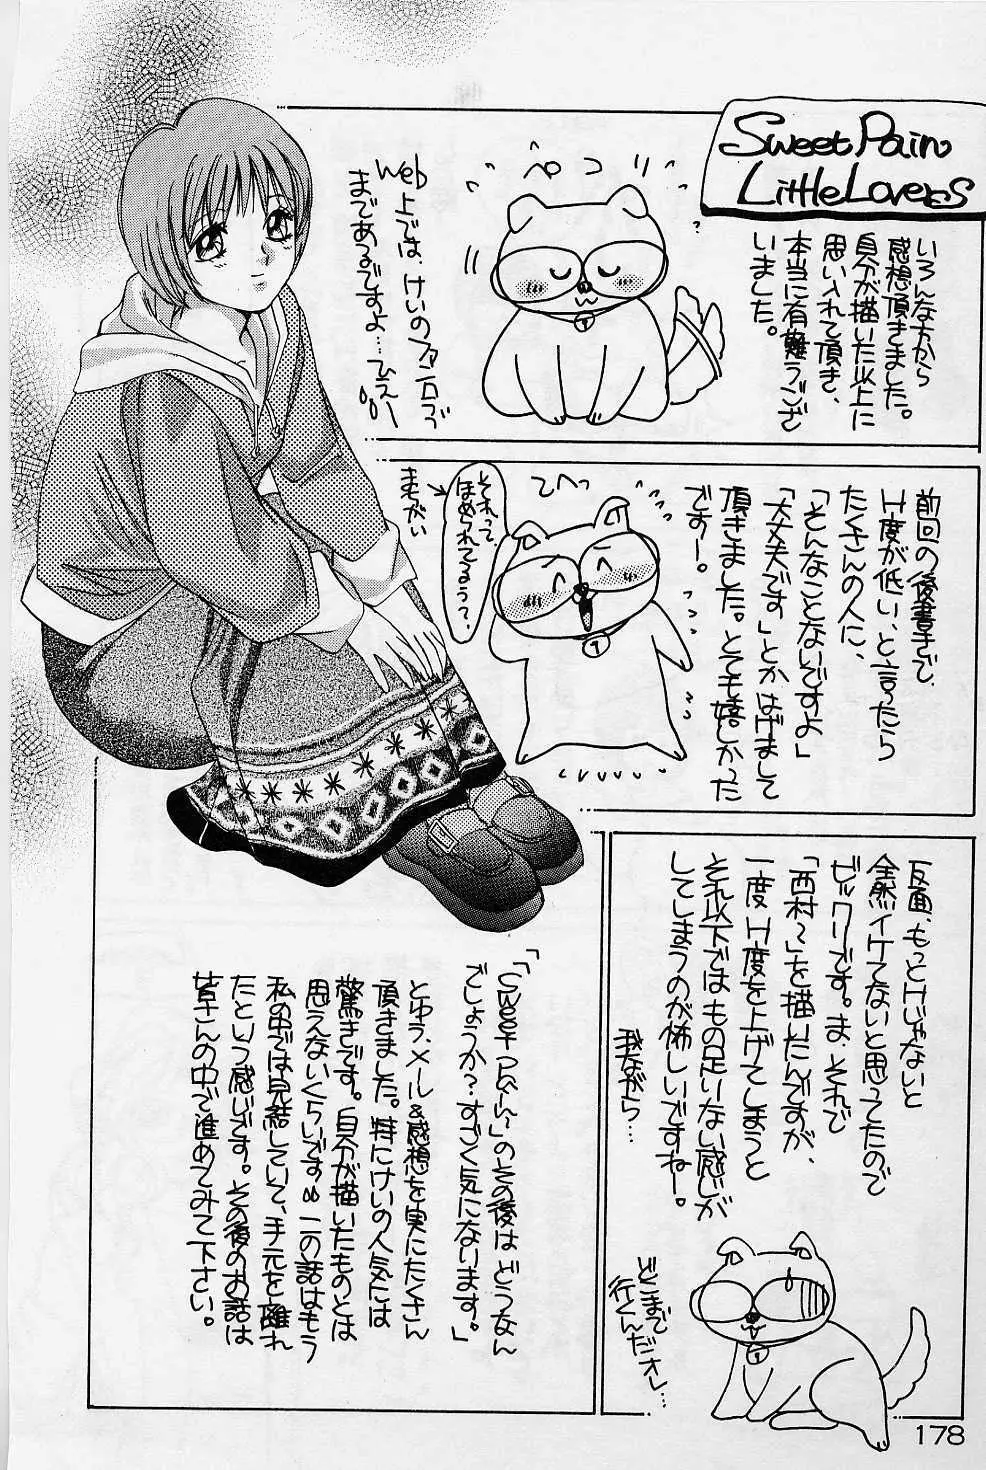 Sweet Pain
Little Lovers
いろんな方から
感想頂きました。
自分が描いた以上に
思い入れて頂き、
本当に有難うござ
いました。
ペコ
web上では、けいのファン石づ
まであるですよ…ひえー
前回の後書きで、
H度が低い、と言ったら
たくさんの人に、
「そんなことないですよ」
「大丈夫です」とかはげまして
頂きました。とても嬉しかった
です！。
てへっ
それって、
ほめられてるぅ？、
まちがい
反面、もっとHじゃないと
全然イケてないと思ってたので
ビックリです。ま、それで
「西村〜」を描いたんですが、
一度H度を上げてしまうと
それ以下ではもの足りない感じが
してしまうのが怖しいですねー。
我ながら…
どこまで
行くんだオレ…
「「Sweet Pain〜」のその後はどうなん
でしょうか？すごく気になります。」
とゆう、メール&感想を実にたくさん
頂きました。特にけいの人気には
驚きです。自分が描いたものとは
思えないくらいです。この話はもう
私の中では完結していて、手元を離れ
たという感じです。その後のお話は
皆さんの中で進めてみて下さい。
178